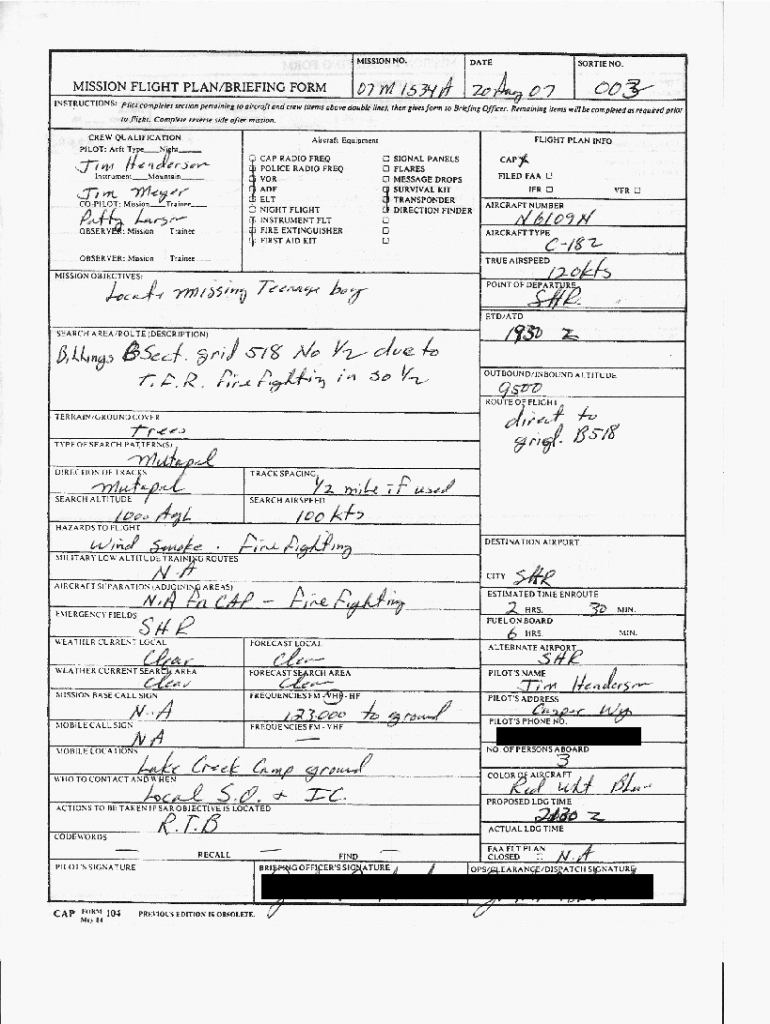 MISSION FLIGHT PLAN/BRIEFING FORM
MISSION NO.
07M1534A
DATE
20 Aug 07
SORTIE NO.
003
INSTRUCTIONS: Pilot completes section pertaining to aircraft and crew items above double lines, then gives form to Briefing Officer. Remaining items will be completed as required prior
to flight. Complete reverse side after mission.
CREW QUALIFICATION
PILOT: Acft Type Night
Jim Henderson
Instrument Mountain
Jim Meyer
CO-PILOT: Mission Trainee
Patty Larson
OBSERVER: Mission Trainee
OBSERVER: Mission Trainee
Aircraft Equipment
CAP RADIO FREQ
POLICE RADIO FREQ
VOR
ADF
ELT
NIGHT FLIGHT
INSTRUMENT FLT
FIRE EXTINGUISHER
FIRST AID KIT
SIGNAL PANELS
FLARES
MESSAGE DROPS
SURVIVAL KIT
TRANSPONDER
DIRECTION FINDER
FLIGHT PLAN INFO
CAP
FILED FAA
IFR VFR
AIRCRAFT NUMBER
N6109N
AIRCRAFT TYPE
C-182
TRUE AIRSPEED
120kts
POINT OF DEPARTURE
SHR.
ETD/ATD
1930 Z
OUTBOUND/INBOUND ALTITUDE
9500
ROUTE OF FLIGHT
direct to
grid. B518
DESTINATION AIRPORT
CITY SHR
ESTIMATED TIME ENROUTE
2 HRS. 30 MIN.
FUEL ON BOARD
6 HRS. MIN.
ALTERNATE AIRPORT
SHR
PILOT'S NAME
Jim Henderson
PILOT'S ADDRESS
Casper Wy
PILOT'S PHONE NO.
NO. OF PERSONS ABOARD
3
COLOR OF AIRCRAFT
Red Wht Blue
PROPOSED LDG TIME
2130 Z
ACTUAL LDG TIME
FAA FLT PLAN
CLOSED N.A
MISSION OBJECTIVES:
Locate missing Teenage boy
SEARCH AREA/ROUTE (DESCRIPTION)
Billings B Sect. grid 518 No 1/2 due to
T.F.R. fire fighting in So 1/2
TERRAIN/GROUND COVER
Trees
TYPE OF SEARCH PATTERN(S)
Mutapal
DIRECTION OF TRACKS
Mutapal
TRACK SPACING
1/2 mile if used
SEARCH ALTITUDE
1000 AgL
SEARCH AIRSPEED
100 kts
HAZARDS TO FLIGHT
Wind smoke. Fire fighting
MILITARY LOW ALTITUDE TRAINING ROUTES
N-A
AIRCRAFT SEPARATION (ADJOINING AREAS)
N.A Fn CAP - fire fighting
EMERGENCY FIELDS
SHR
WEATHER CURRENT LOCAL
Clear
FORECAST LOCAL
Clear
WEATHER CURRENT SEARCH AREA
Clear
FORECAST SEARCH AREA
Clear
MISSION BASE CALL SIGN
N-A
FREQUENCIES FM - VHF - HF
123.000 to ground
MOBILE CALL SIGN
NA
FREQUENCIES FM - VHF
—
MOBILE LOCATIONS
Lake Creek Camp ground
WHO TO CONTACT AND WHEN
Local S.O. & IC.
ACTIONS TO BE TAKEN IF SAR OBJECTIVE IS LOCATED
R.T.B
CODEWORDS
— RECALL — FIND —
PILOT'S SIGNATURE
BRIEFING OFFICER'S SIGNATURE
OPS/CLEARANCE/DISPATCH SIGNATURE
CAP FORM 104 PREVIOUS EDITION IS OBSOLETE.
May 84